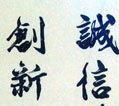 誠信
創新